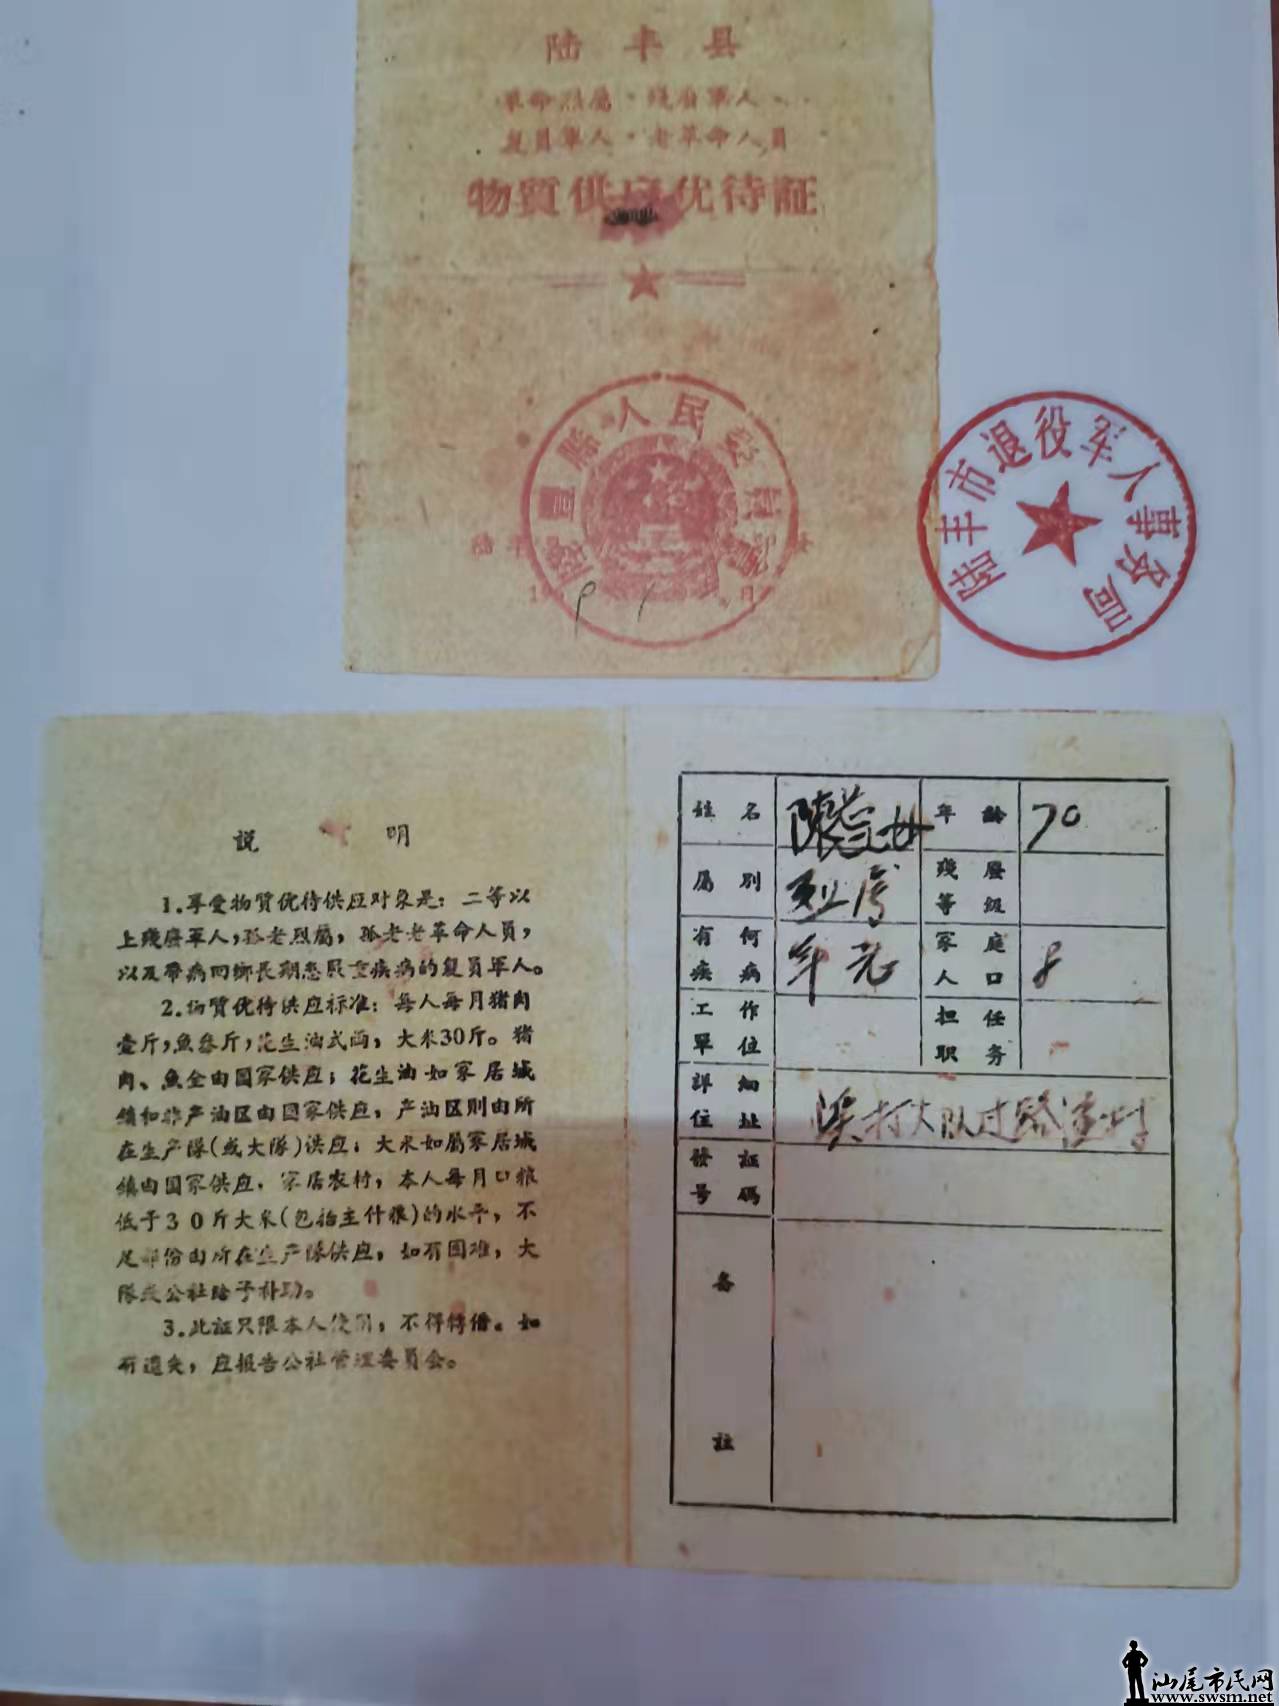 陆丰县
革命烈屬·殘廢軍人
复員軍人·老革命人員
物質供应优待証
陸豐縣人民委員會
陆丰市退役军人事务局
説明
1.享受物質优待供应对象是：二等以
上殘廢軍人，孤老烈屬，孤老老革命人員，
以及帶病回鄉長期患嚴重疾病的复員軍人。
2.物質优待供应标准：每人每月猪肉
壹斤，魚叁斤，花生油弍兩，大米30斤。猪
肉、魚全由国家供应；花生油如家居城
鎮和非产油区由国家供应，产油区則由所
在生产隊(或大隊)供应；大米如屬家居城
鎮由国家供应，家居农村，本人每月口粮
低于30斤大米(包括主什粮)的水平，不
足部份由所在生产隊供应，如有困难，大
隊或公社給予补助。
3.此証只限本人使用，不得轉借。如
有遺失，应报告公社管理委員会。
姓名 陳 年齡 70
屬別 烈屬 殘廢等級
有何疾病 年老 家庭人口 8
工作單位 担任职务
詳細住址 大队过路
發証号碼
备註
汕尾市民网
www.swsm.net